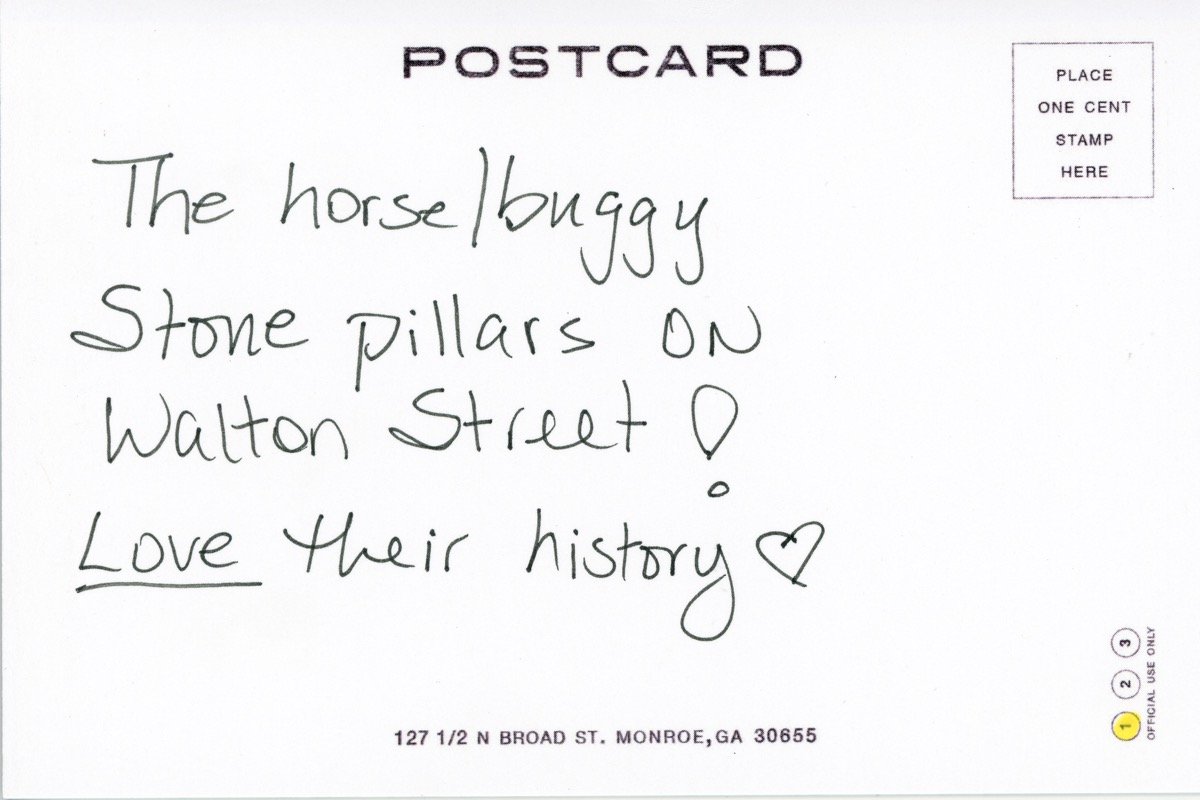 POSTCARD
PLACE
ONE CENT
STAMP
HERE
The horse/buggy
Stone pillars ON
Walton Street!
Love their history ♡
127 1/2 N BROAD ST. MONROE, GA 30655
1 2 3
OFFICIAL USE ONLY